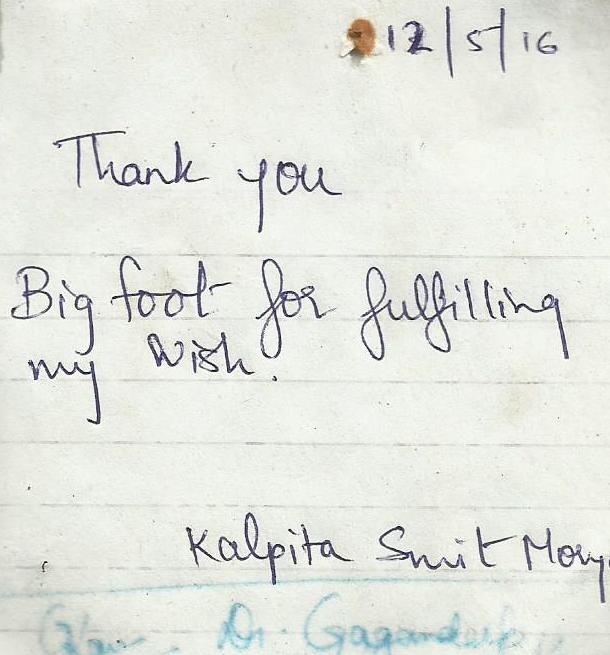 12/5/16
Thank you
Big foot for fulfilling
my wish.
Kalpita Smit
Dr.